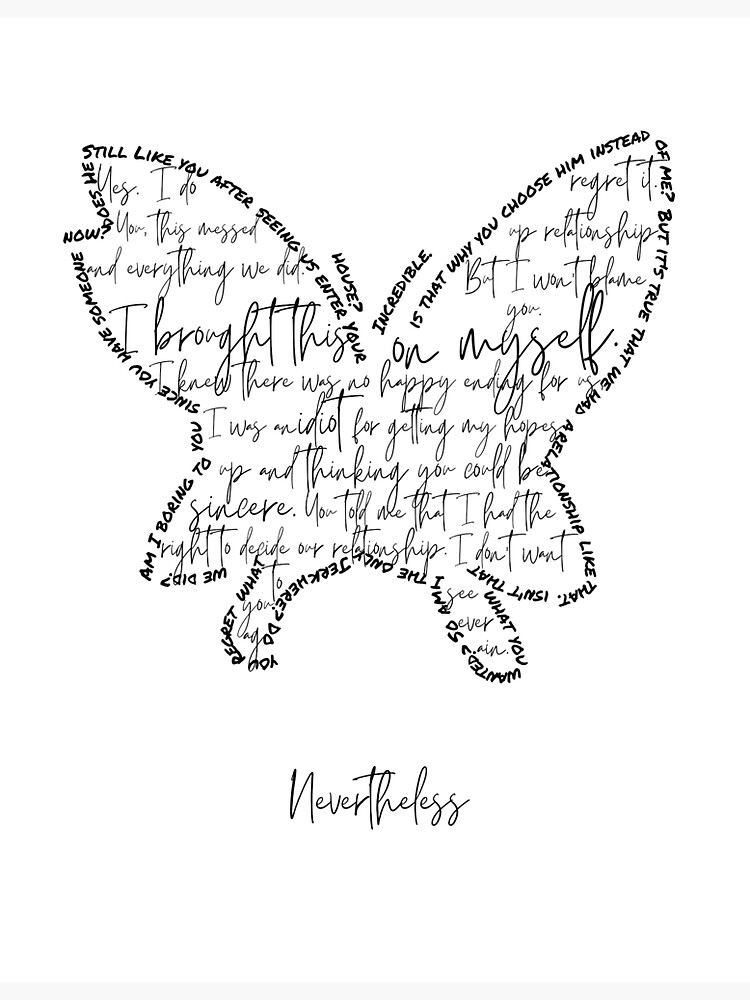 INCREDIBLE.
IS THAT WHY YOU CHOOSE HIM INSTEAD OF ME? BUT IT'S TRUE THAT WE HAD A RELATIONSHIP LIKE THAT. ISN'T THAT WHAT YOU WANTED? SO AM I THE ONLY JERK HERE? DO YOU REGRET WHAT WE DID?
AM I BORING TO YOU SINCE YOU HAVE SOMEONE NOW? DOES HE STILL LIKE YOU AFTER SEEING US ENTER YOUR HOUSE?
Yes. I do regret it.
You, this messed up relationship
and everything we did. But I won't blame
you.
I brought this on myself.
I knew there was no happy ending for us
I was an idiot for getting my hopes
up and thinking you could be
sincere. You told me that I had the
right to decide our relationship. I don't want
to see
you ever
ag ain.
Nevertheless